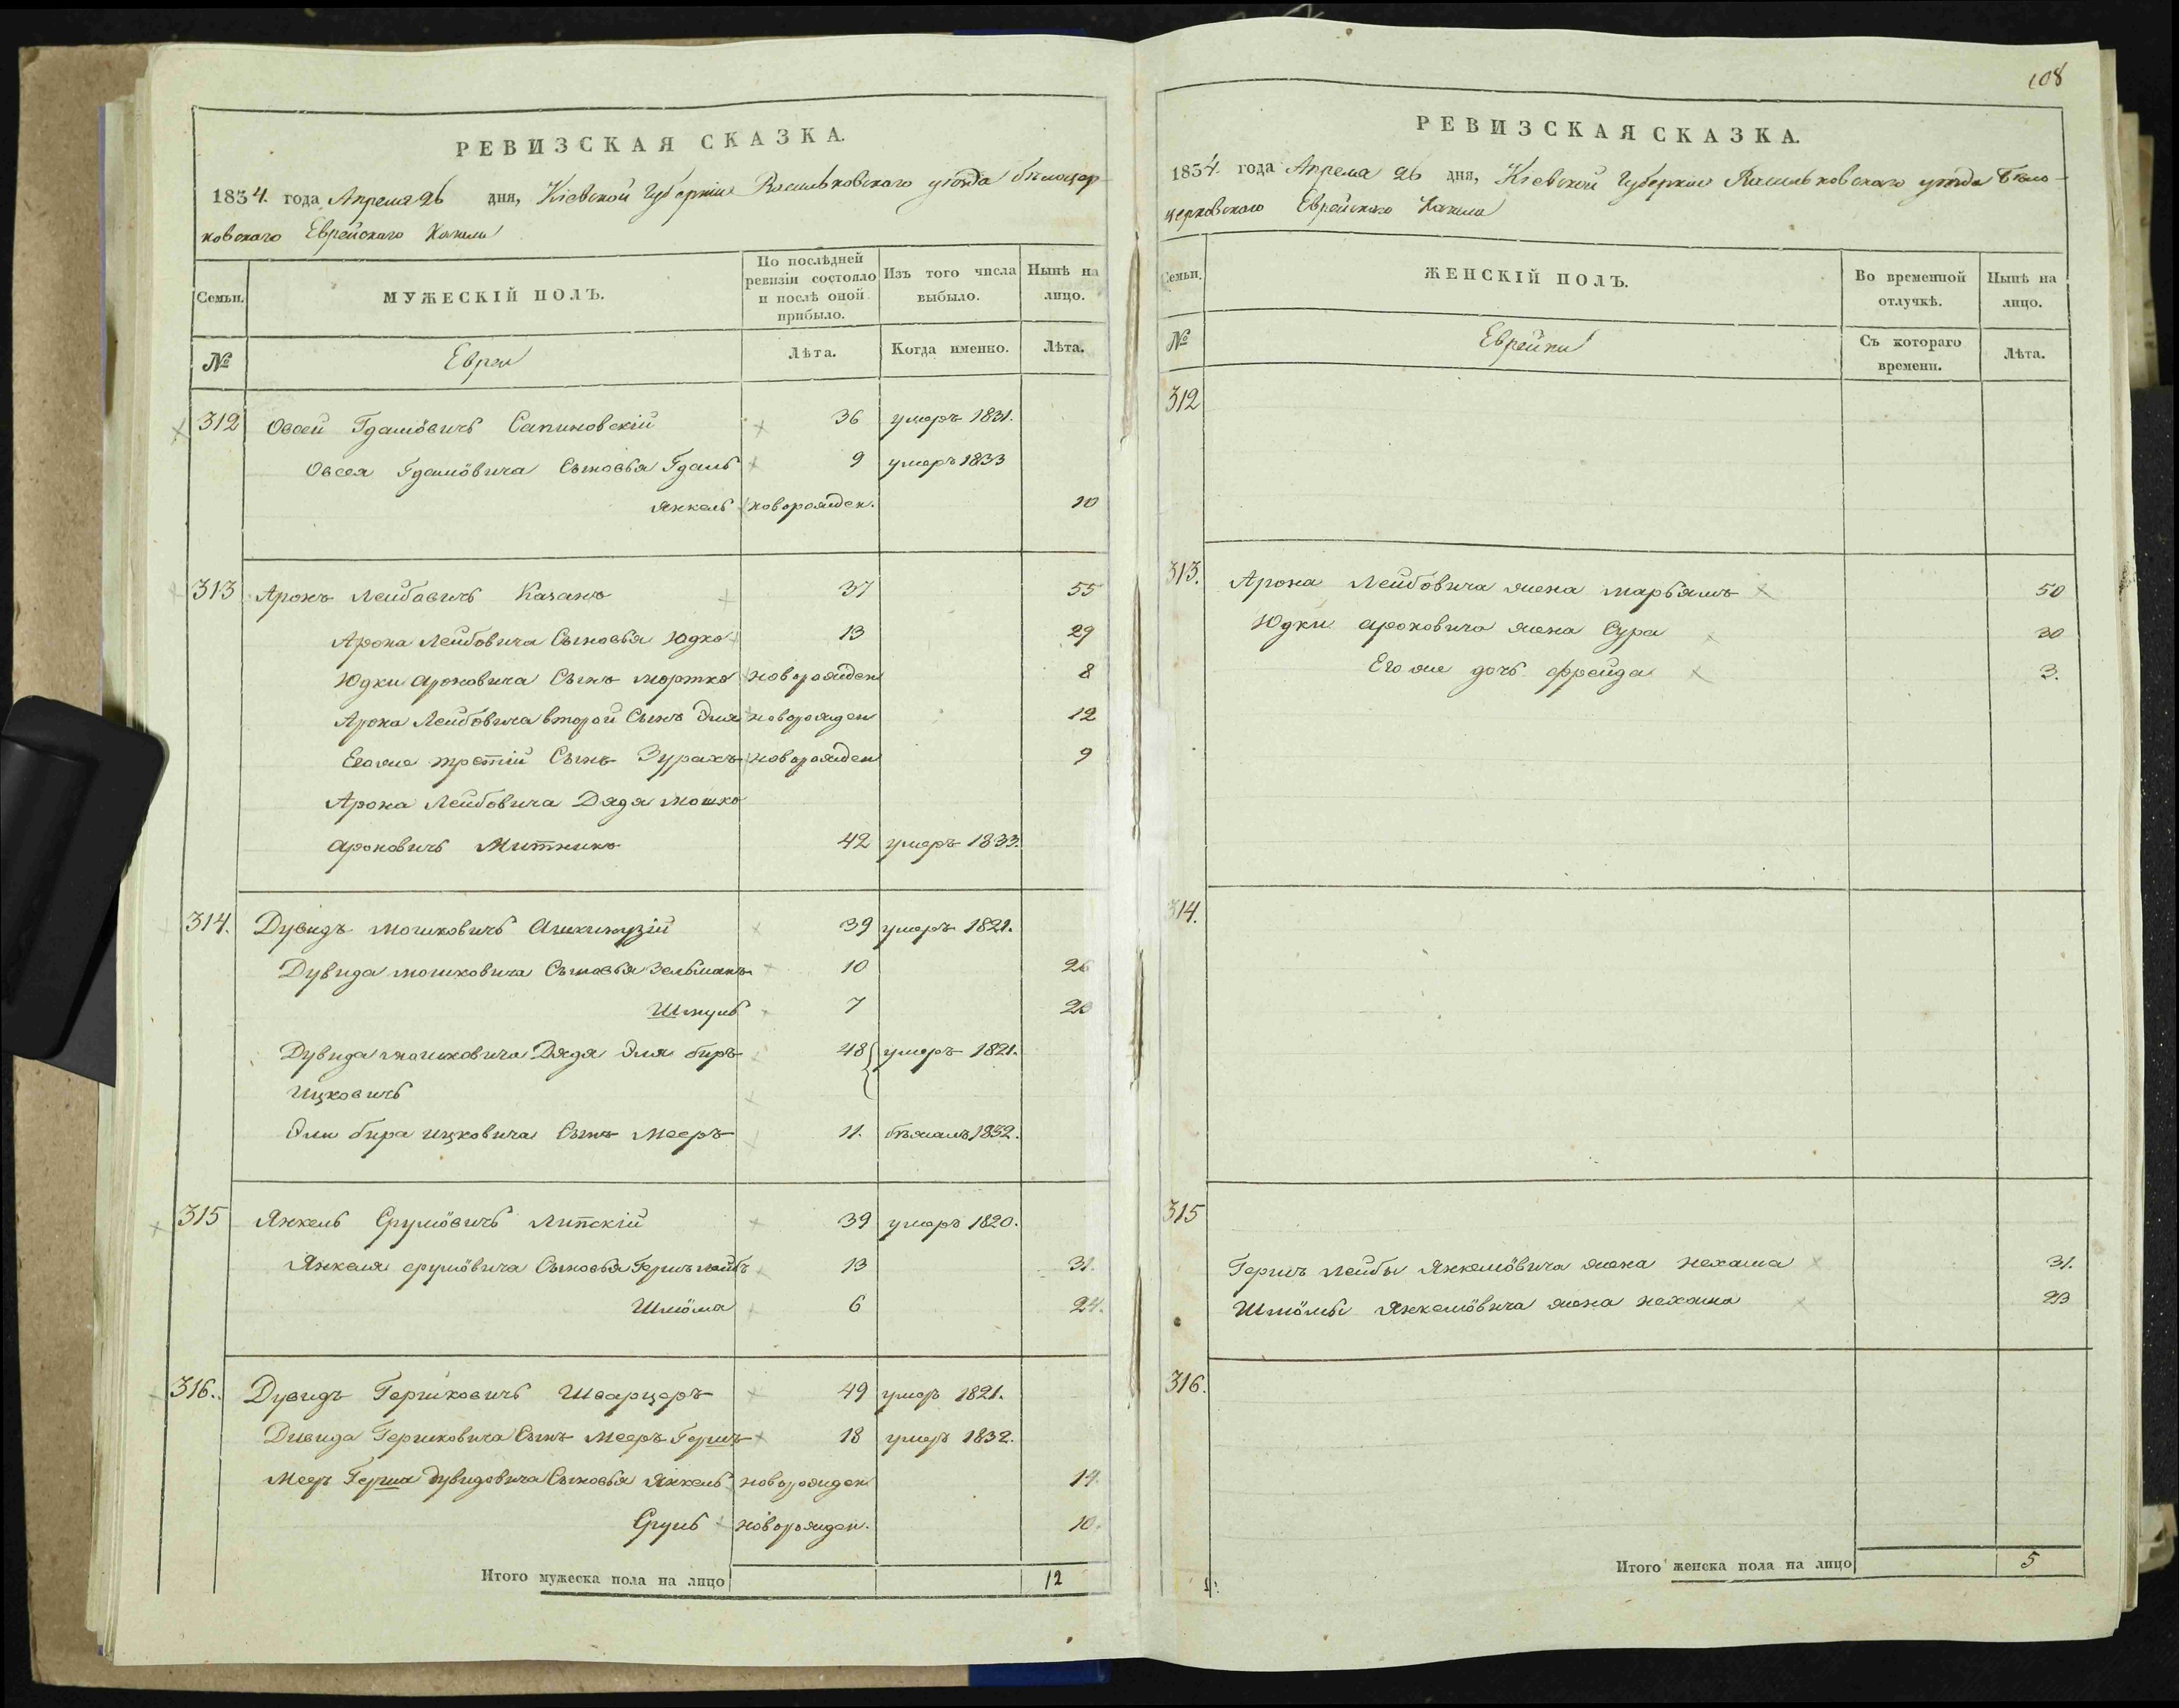 108
РЕВИЗСКАЯ СКАЗКА.
1834. года Апреля 26 дня, Кіевской Губерніи Васильковского уѣзда бѣлоцер-
ковскаго Еврейскаго Кагала
Семьи.
МУЖЕСКІЙ ПОЛЪ.
По послѣдней ревизіи состояло и послѣ оной прибыло.
Изъ того числа выбыло.
Нынѣ на лицо.
№
Евреи
Лѣта.
Когда именно.
Лѣта.
312 Овсей Гдалiовичъ Сапиновскій 36 умеръ 1831.
Овсея Гдалiовича Сыновья Гдаль 9 умеръ 1833
Янкель новорожден. 10
313 Аронъ Лейбовичъ Каганъ 37 55
Арона Лейбовича Сыновья Юдко 13 29
Юдки Ароновича Сынъ мортко новорожден 8
Арона Лейбовича второй Сынъ Эля новорожден 12
Его же третій Сынъ Зурахъ новорожден 9
Арона Лейбовича Дядя мошко
Ароновичъ Митникъ 42 умеръ 1833.
314. Дувидъ мошковичъ Ашкинузій 39 умеръ 1821.
Дувида мошковича Сыновья Зельманъ 10 26
Шмуль 7 20
Дувида мошковича Дядя Эля биръ 48 умеръ 1821.
Ицковичъ
Эли бира ицковича Сынъ мееръ 11. бѣжалъ 1832.
315 Янкель Срулiовичъ Липскій 39 умеръ 1820.
Янкеля срулiовича Сыновья Гершъ лейбъ 13 31.
Шлiома 6 24.
316. Дувидъ Гершковичъ Шварцеръ 49 умеръ 1821.
Дувида Гершковича Сынъ Мееръ Гершъ 18 умеръ 1832.
Меер Герша Дувидовича Сыновья Янкель новорожден 14.
Сруль новорожден. 10.
Итого мужеска пола на лицо 12
РЕВИЗСКАЯ СКАЗКА.
1834. года Апреля 26 дня, Кіевской Губерніи Васильковскаго уѣзда Бѣло-
церковского Еврейскаго Кагала
Семьи.
ЖЕНСКІЙ ПОЛЪ.
Во временной отлучкѣ.
Нынѣ на лицо.
№
Еврейки
Съ котораго времени.
Лѣта.
312
313. Арона Лейбовича жена марьямъ 50
Юдки ароновича жена Сура 30
Его же дочь фрейда 3.
314.
315
Гершъ лейбы Янкелiовича жена нехама 31.
Шлiомы Янкелiовича жена нехама 23
316.
Итого женска пола на лицо 5